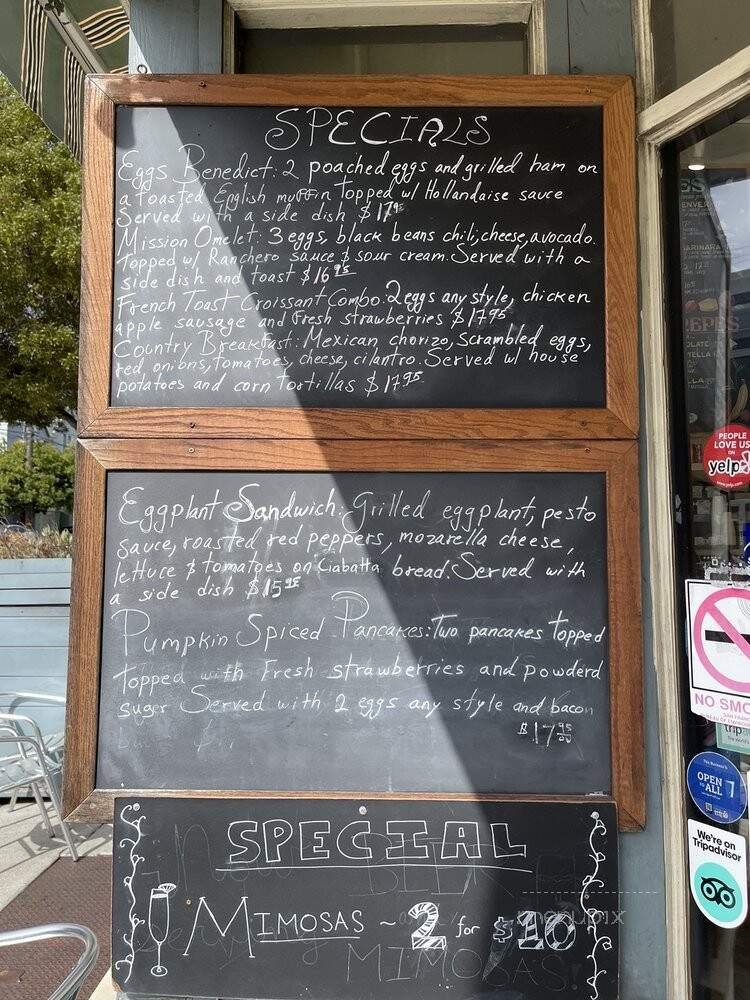 SPECIALS
Eggs Benedict: 2 poached eggs and grilled ham on
a toasted English muffin Topped w/ Hollandaise sauce
Served with a side dish $17.95
Mission Omelet: 3 eggs, black beans chili, cheese, avocado.
Topped w/ Ranchero sauce & sour cream. Served with a
side dish and toast $16.95
French Toast Croissant Combo. 2 eggs any style, chicken
apple sausage and Fresh strawberries $17.95
Country Breakfast: Mexican chorizo, Scrambled eggs,
red, onions, tomatoes, cheese, cilantro. Served w/ house
potatoes and corn Tortillas $17.95
Eggplant Sandwich: Grilled eggplant, pesto
sauce, roasted red peppers, mozarella cheese,
lettuce & tomatoes on Ciabatta bread. Served with
a side dish $15.95
Pumpkin Spiced Pancakes: Two pancakes topped
Topped with Fresh strawberries and powderd
suger Served with 2 eggs any style and bacon
$17.95
SPECIAL
MIMOSAS ~ 2 for $10
MIMOSAS!
PEOPLE
LOVE US
ON
yelp
NO SMO
OPEN
to ALL
We're on
Tripadvisor